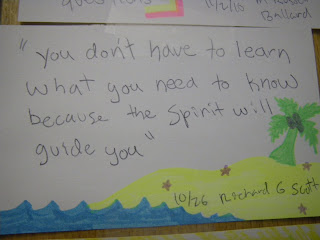 11/2/10
Ballard
"you don't have to learn
what you need to know
because the Spirit will
guide you"
10/26 Richard G Scott